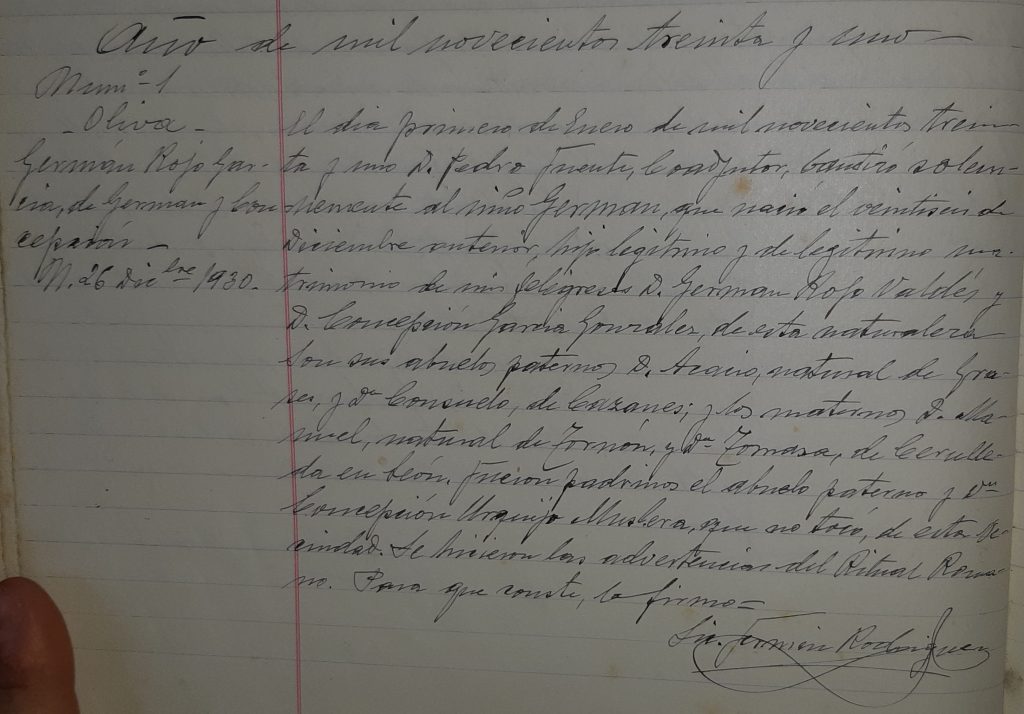 Año de mil novecientos treinta y uno
Num.º 1
- Oliva -
Germán Rojo Gar-
cia, de German y Con
cepción -
N. 26 Dic bre 1930.
El dia primero de Enero de mil novecientos trein-
ta y uno D. Pedro Fuente, Coadjutor, bautizó solem-
nemente al niño German, que nació el veintiseis de
Diciembre anterior, hijo legitimo y de legitimo ma-
trimonio de mis feligreses D. German Rojo Valdés y
D. Concepción Garcia Gonzalez, de esta naturaleza
Son sus abuelos paternos D. Acacio, natural de Gra-
ses, y Dª Consuelo, de Cazanes; y los maternos D. Ma-
nuel, natural de Tornón, y Dª Tomasa, de Cerulle-
da en León. Fueron padrinos el abuelo paterno y Dª
Concepción Urquijo Muslera, que no tocó, de esta ve-
cindad. Se hicieron las advertencias del Ritual Roma-
no. Para que conste, lo firmo =
Lic. Fermin Rodriguez